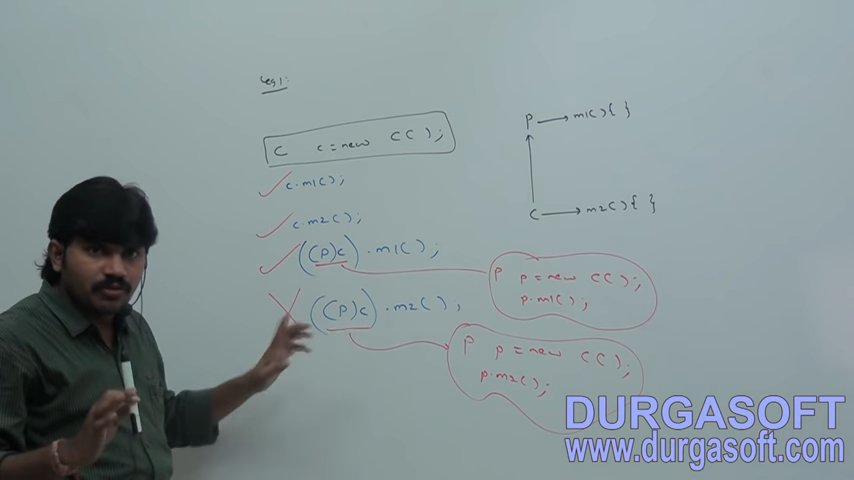 eg1:
C c = new C();
c.m1();
c.m2();
((P)c).m1();
((P)c).m2();
P → m1(){ }
C → m2(){ }
P p = new C();
p.m1();
P p = new C();
p.m2();
DURGASOFT
www.durgasoft.com